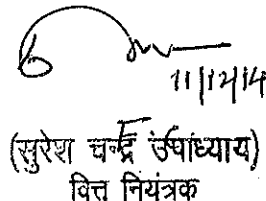 11/12/14
(सुरेश चन्द्र उपाध्याय)
वित्त नियंत्रक